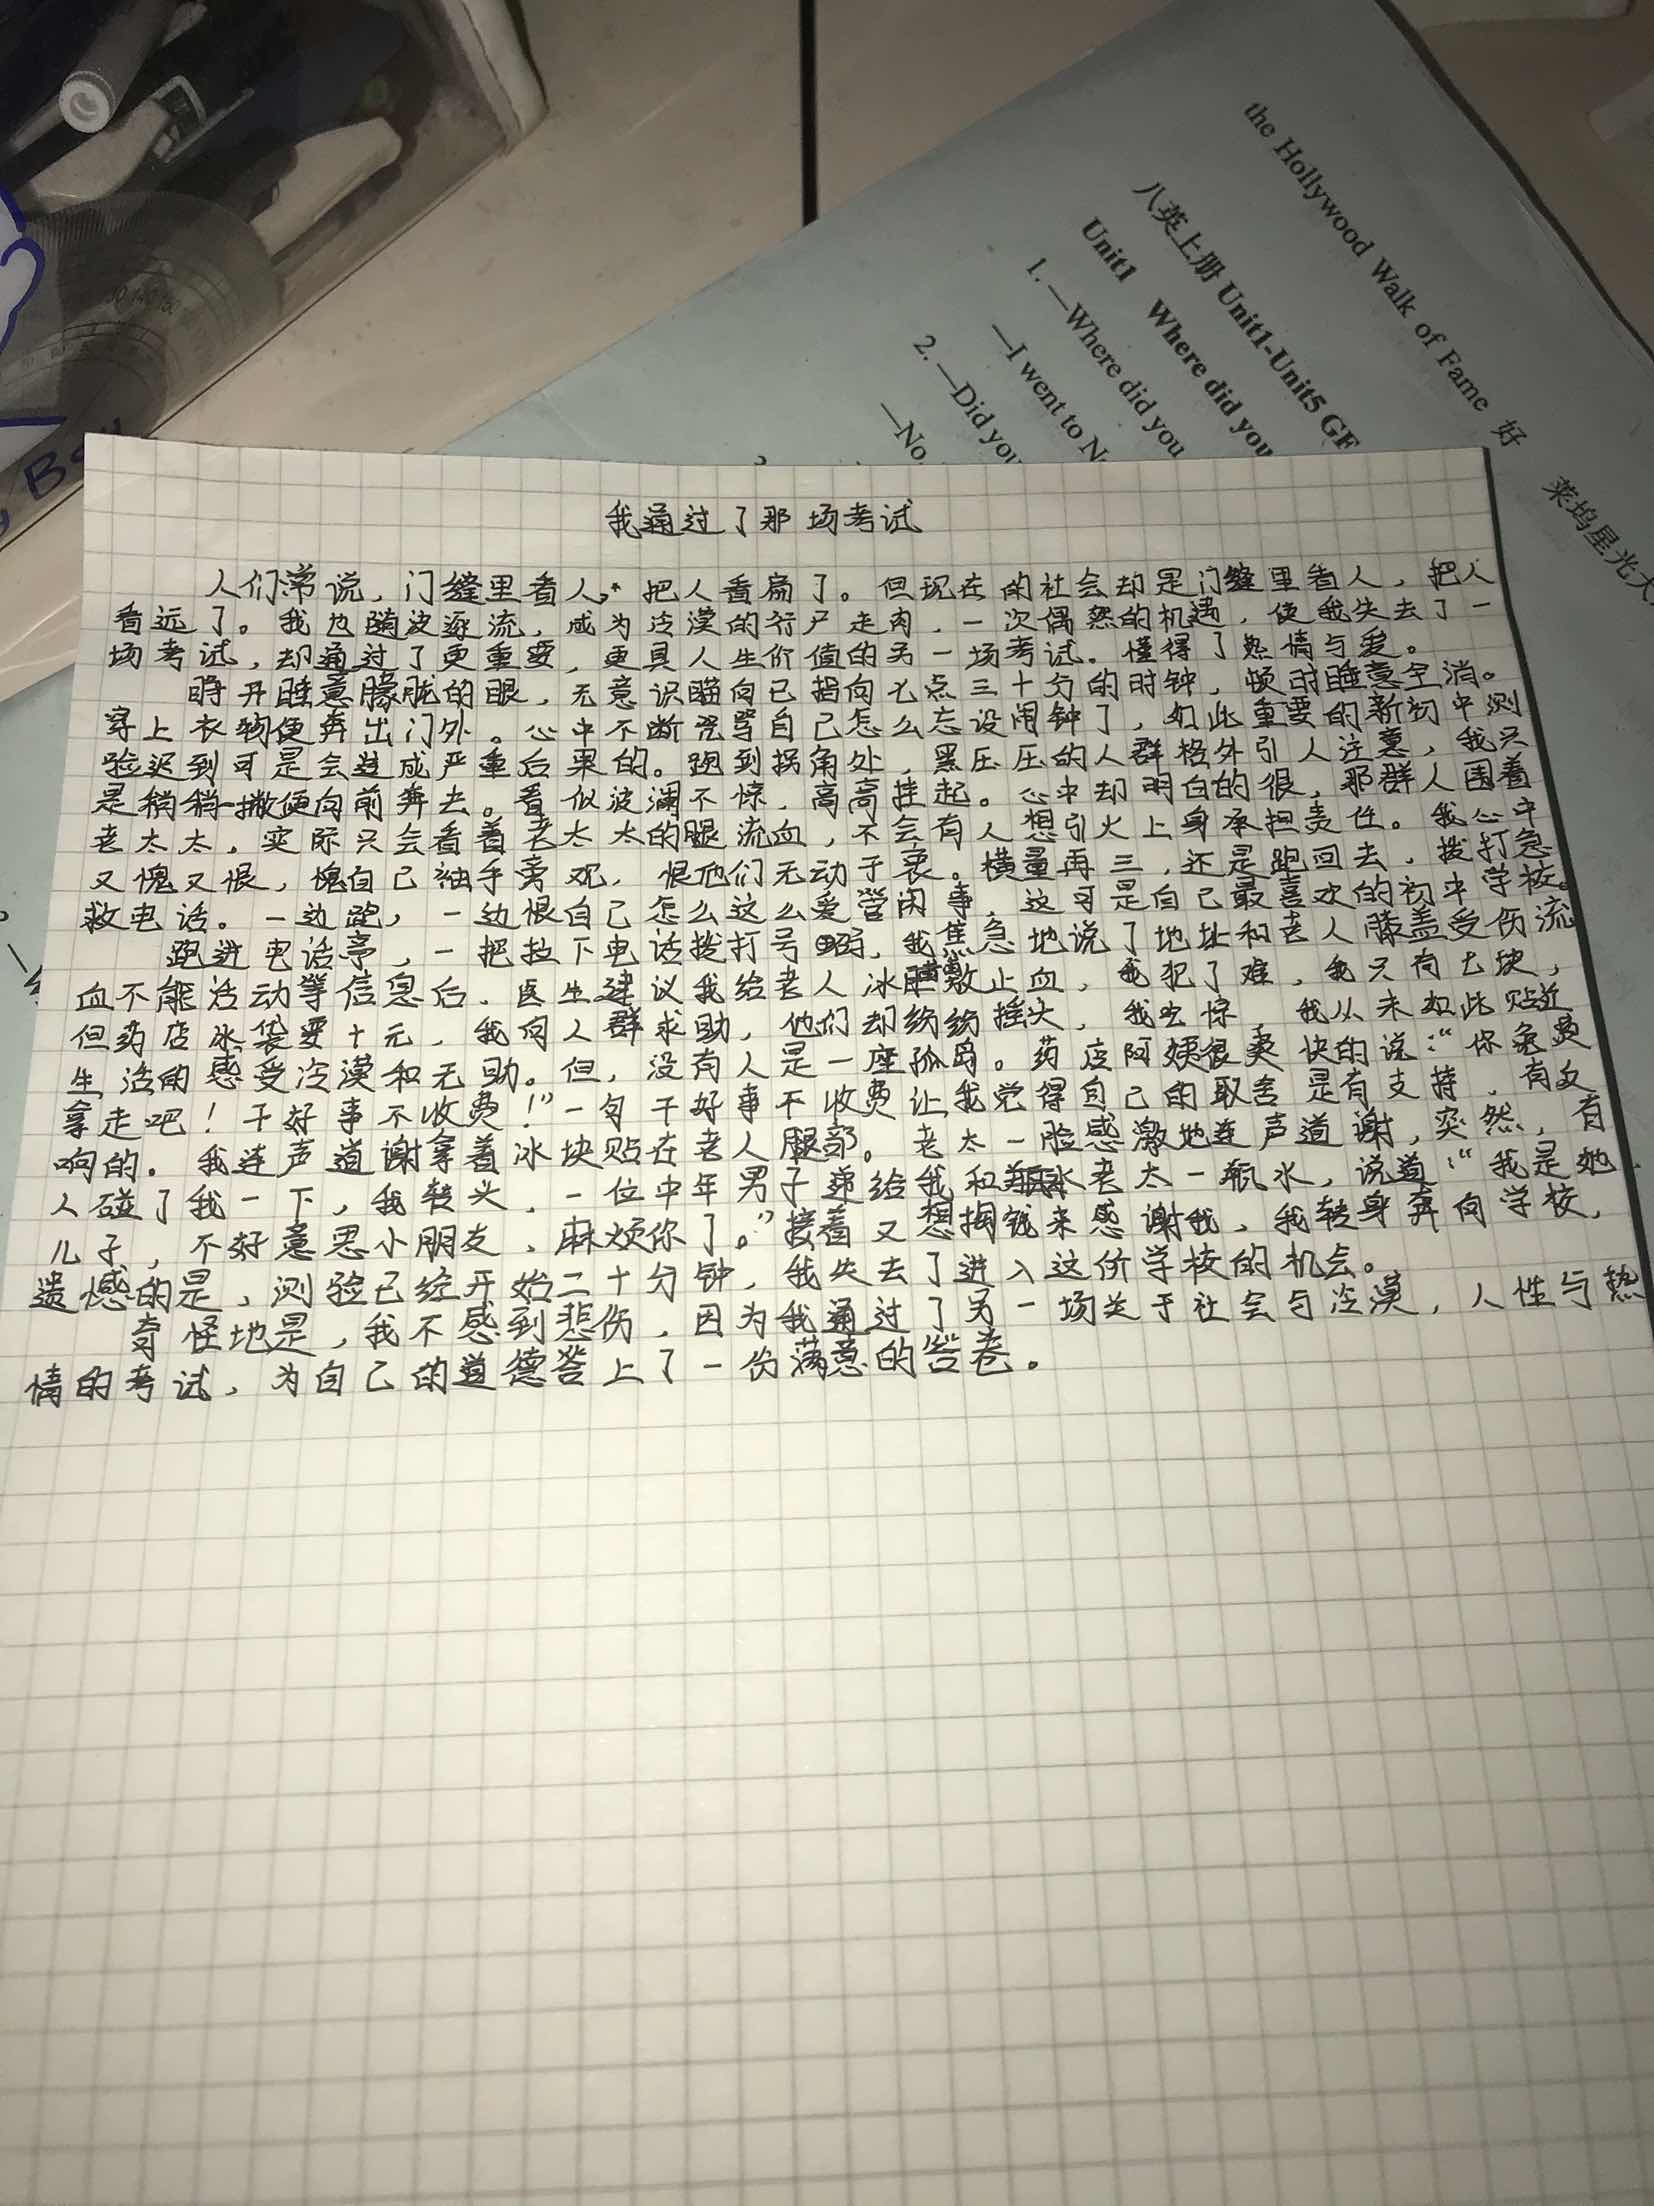 the Hollywood Walk of Fame 好
莱坞星光大
八英上册 Unit1-Unit5 GF
Unit1 Where did you
1. —Where did you
—I went to N
2. —Did you
—No,
我通过了那场考试
人们常说，门缝里看人，把人看扁了。但现在的社会却是门缝里看人，把人
看远了。我也随波逐流，成为冷漠的行尸走肉，一次偶然的机遇，使我失去了一
场考试，却通过了更重要，更具人生价值的另一场考试。懂得了热情与爱。
睁开睡意朦胧的眼，无意识瞄向已指向七点三十分的时钟，顿时睡意全消。
穿上衣物便奔出门外。心中不断咒骂自己怎么忘设闹钟了，如此重要的新初中测
验迟到可是会造成严重后果的。跑到拐角处，黑压压的人群格外引人注意，我只
是稍稍一撇便向前奔去。看似波澜不惊，高高挂起。心中却明白的很，那群人围着
老太太，实际只会看着老太太的腿流血，不会有人想引火上身承担责任。我心中
又愧又恨，愧自己袖手旁观，恨他们无动于衷。横量再三，还是跑回去，拨打急
救电话。一边跑，一边恨自己怎么这么爱管闲事，这可是自己最喜欢的初中学校。
跑进电话亭，一把拉下电话拨打号码，我焦急地说了地址和老人膝盖受伤流
血不能活动等信息后，医生建议我给老人冰敷止血，我犯了难，我只有七块，
但药店冰袋要十元，我向人群求助，他们却纷纷摇头，我吃惊，我从未如此贴近
生活的感受冷漠和无助。但，没有人是一座孤岛。药店阿姨很爽快的说：“你免费
拿走吧！干好事不收费！”一句干好事不收费让我觉得自己的取舍是有支持，有反
响的。我连声道谢拿着冰块贴在老人腿部。老太一脸感激地连声道谢，突然，有
人碰了我一下，我转头，一位中年男子递给我和老太一瓶水，说道：“我是她
儿子，不好意思小朋友，麻烦你了。”接着又想掏钱来感谢我，我转身奔向学校，
遗憾的是，测验已经开始二十分钟，我失去了进入这所学校的机会。
奇怪地是，我不感到悲伤，因为我通过了另一场关于社会与冷漠，人性与热
情的考试，为自己的道德答上了一份满意的答卷。